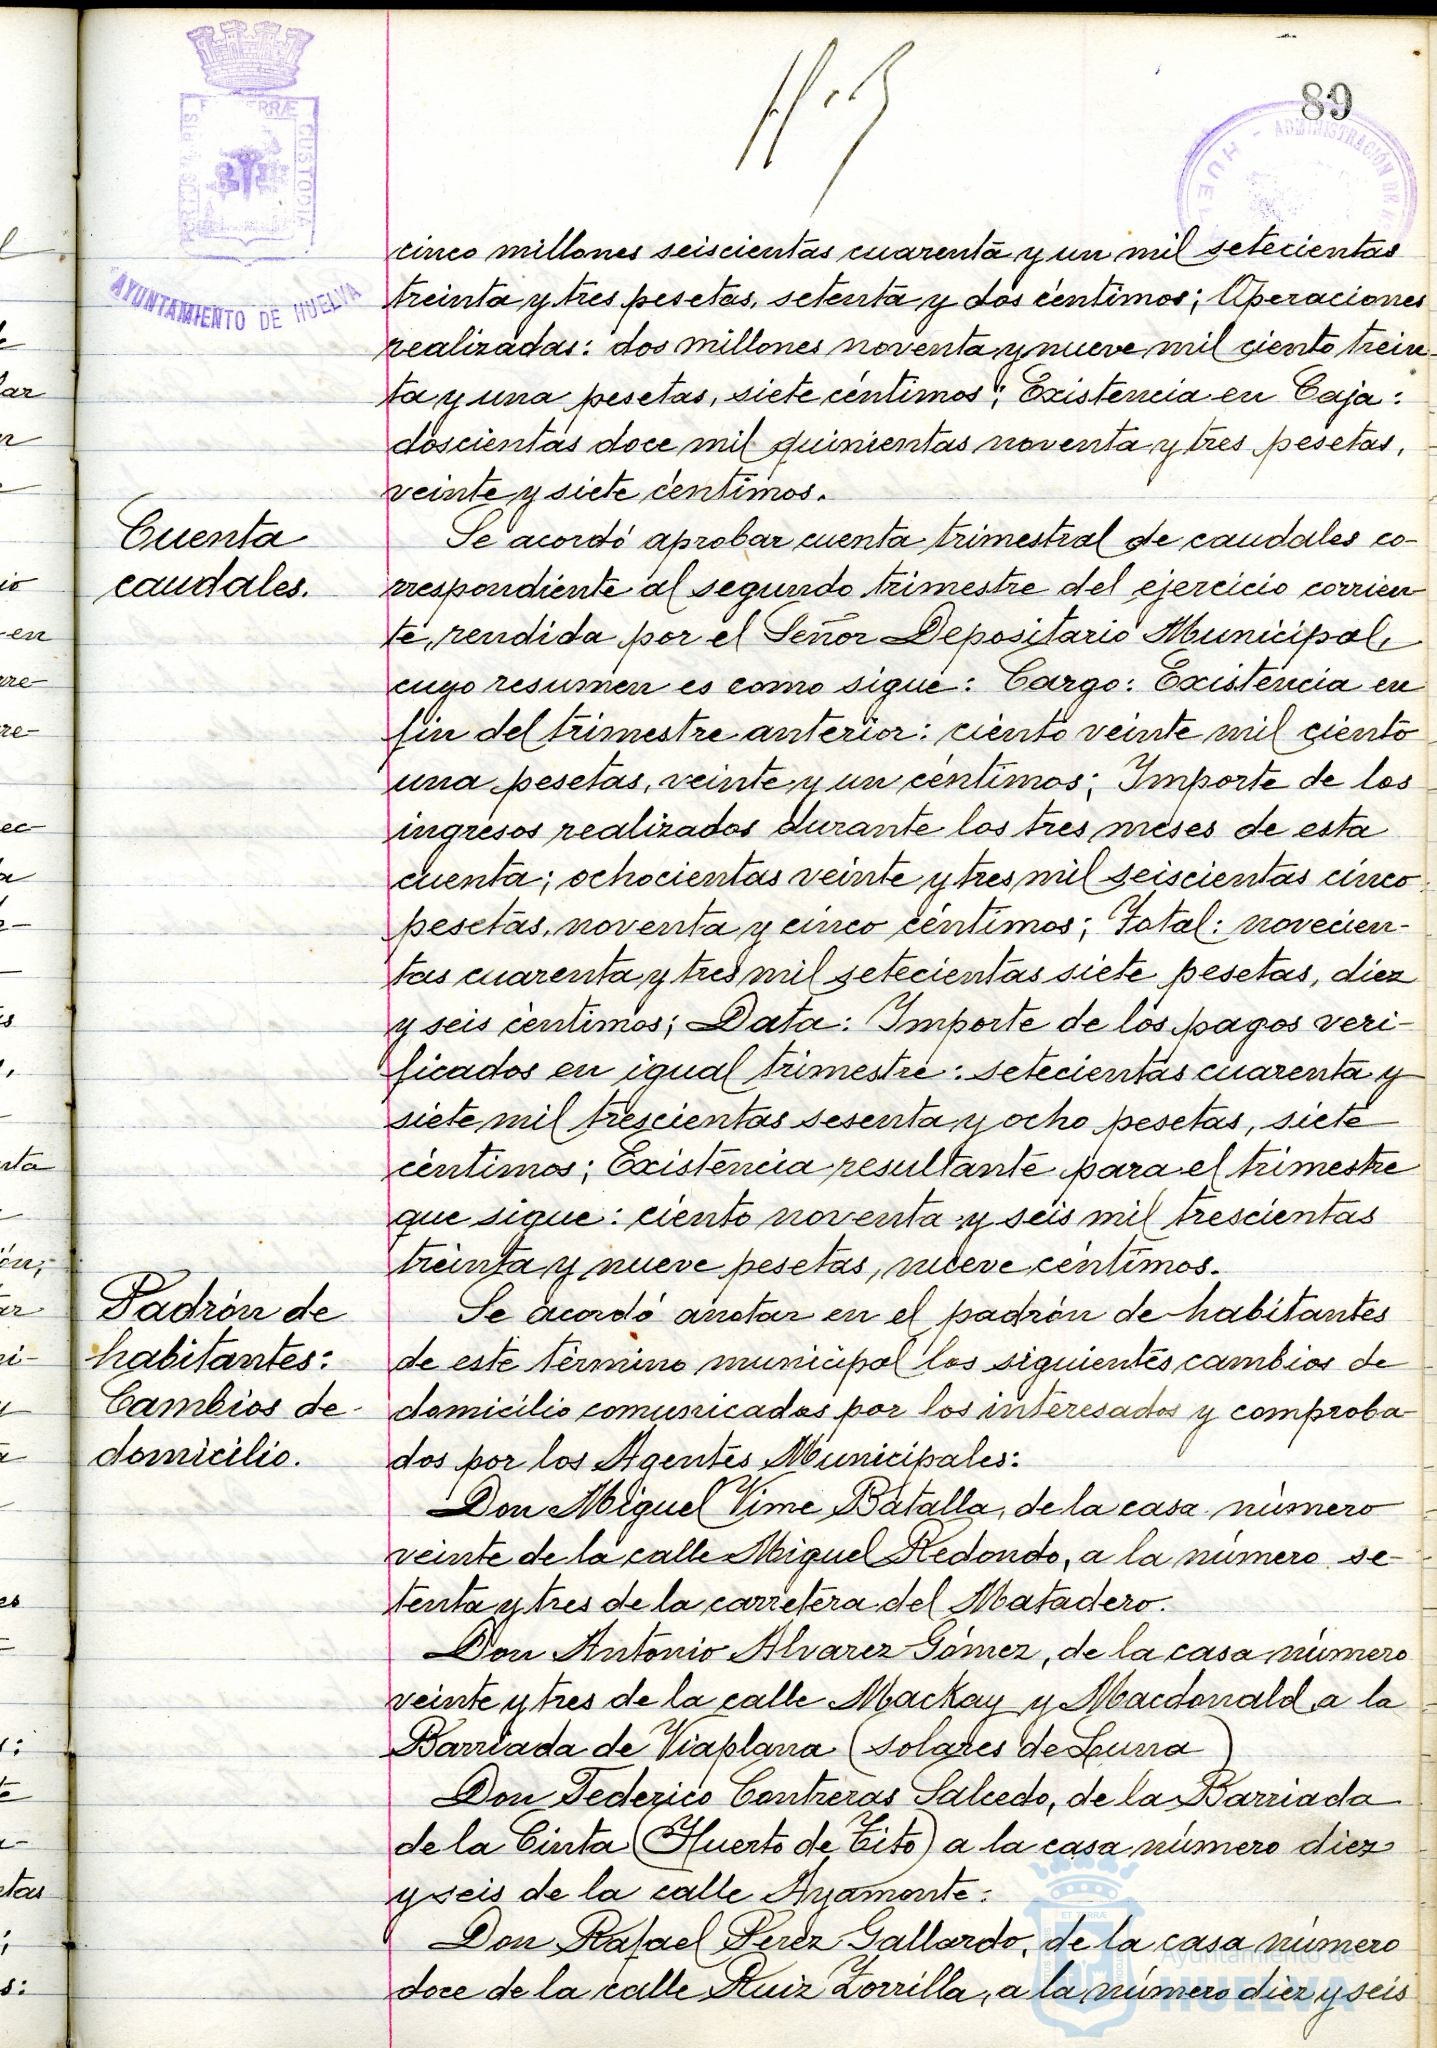 89
ADMINISTRACIÓN DE
HUEL
CUSTODIA
AYUNTAMIENTO DE HUELVA
cinco millones seiscientas cuarenta y un mil setecientas
treinta y tres pesetas, setenta y dos céntimos; Operaciones
realizadas: dos millones noventa y nueve mil ciento trein-
ta y una pesetas, siete céntimos; Existencia en Caja:
doscientas doce mil quinientas noventa y tres pesetas,
veinte y siete céntimos.
Cuenta
caudales.
Se acordó aprobar cuenta trimestral de caudales co-
rrespondiente al segundo trimestre del ejercicio corrien-
te, rendida por el Señor Depositario Municipal,
cuyo resumen es como sigue: Cargo: Existencia en
fin del trimestre anterior: ciento veinte mil ciento
una pesetas, veinte y un céntimos; Importe de los
ingresos realizados durante los tres meses de esta
cuenta; ochocientas veinte y tres mil seiscientas cinco
pesetas, noventa y cinco céntimos; Total: novecien-
tas cuarenta y tres mil setecientas siete pesetas, diez
y seis céntimos; Data: Importe de los pagos veri-
ficados en igual trimestre: setecientas cuarenta y
siete mil trescientas sesenta y ocho pesetas, siete
céntimos; Existencia resultante para el trimestre
que sigue: ciento noventa y seis mil trescientas
treinta y nueve pesetas, nueve céntimos.
Padrón de
habitantes:
Cambios de
domicilio.
Se acordó anotar en el padrón de habitantes
de este término municipal los siguientes cambios de
domicilio comunicados por los interesados y comproba-
dos por los Agentes Municipales:
Don Miguel Vime Batalla, de la casa número
veinte de la calle Miguel Redondo, a la número se-
tenta y tres de la carretera del Matadero.
Don Antonio Alvarez Gómez, de la casa número
veinte y tres de la calle Mackay y Macdonald, a la
Barriada de Viaplana (solares de Luna)
Don Federico Contreras Salcedo, de la Barriada
de la Cinta (Huerto de Tito) a la casa número diez
y seis de la calle Ayamonte:
Don Rafael Perez Gallardo, de la casa número
doce de la calle Ruiz Zorrilla, a la número diez y seis
Ayuntamiento de
HUELVA